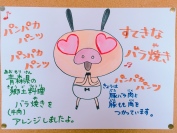 パンパカ
パンツ
パンパカ
パンツ
すてきな
バラ焼き
パンパカ
パンツ
パンパカ
パンツ
あおもりけん
青森県の
郷土料理
バラ焼きを
(牛肉)
アレンジしましたよ。
きょうは
豚バラ肉と
豚もも肉を
つかっています。